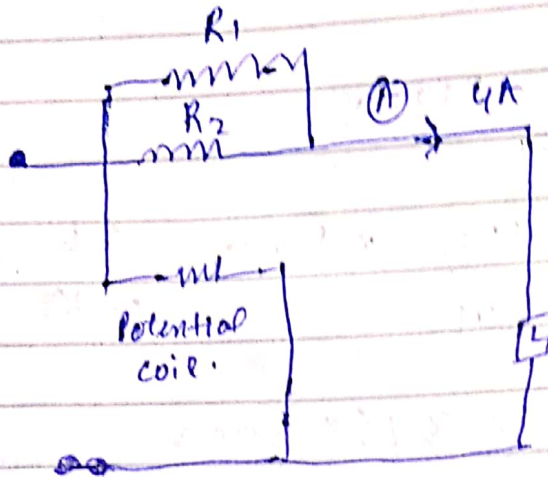 R1
R2
A 4A
Potential
coil.
L